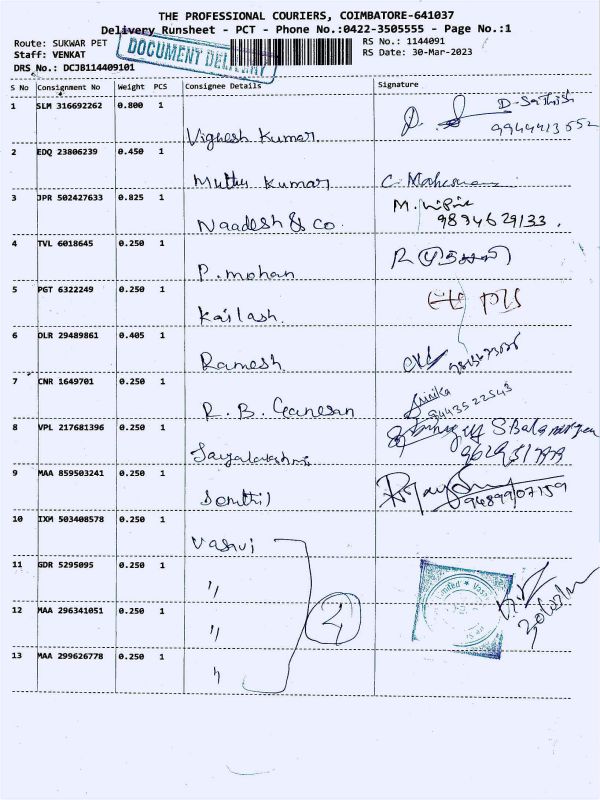 THE PROFESSIONAL COURIERS, COIMBATORE-641037
Delivery Runsheet - PCT - Phone No.:0422-3505555 - Page No.:1
Route: SUKWAR PET
RS No.: 1144091
Staff: VENKAT
RS Date: 30-Mar-2023
DRS No.: DCJB114409101
DOCUMENT DELIVERY
S No Consignment No Weight PCS Consignee Details Signature
1 SLM 316692262 0.800 1
D-Sathish
Vignesh Kumar
2 EDQ 23806239 0.450 1
Muthu Kumar
3 JPR 502427633 0.825 1
M.
Naadesh & Co
9894629133.
4 TVL 6018645 0.250 1
P. mohan
5 PGT 6322249 0.250 1
Kailash
6 DLR 29489861 0.405 1
Ramesh
7 CNR 1649701 0.250 1
9443522543
R. B. Ganesan
8 VPL 217681396 0.250 1
Jayalakshmi
9 MAA 859503241 0.250 1
Senthil
9489907159
10 IXM 503408578 0.250 1
Vasavi
11 GDR 5295095 0.250 1
"
12 MAA 296341051 0.250 1
" 4
13 MAA 299626778 0.250 1
"